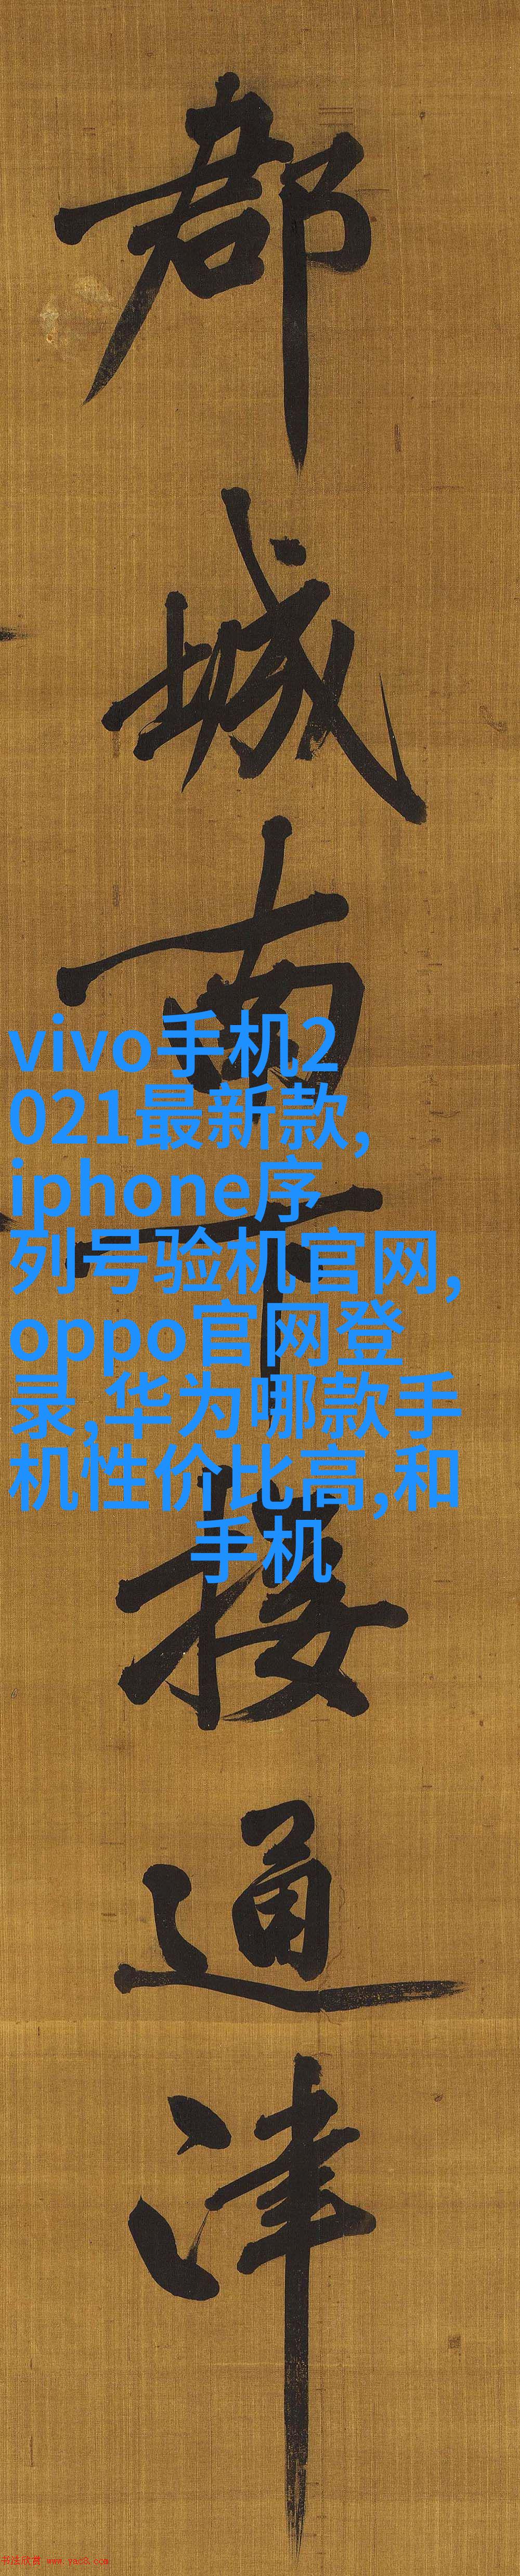 都城南下接通津
vivo手机2
021最新款,
iphone序
列号验机官网,
oppo官网登
录,华为哪款手
机性价比高,和
手机
书法欣赏 www.yac8.com